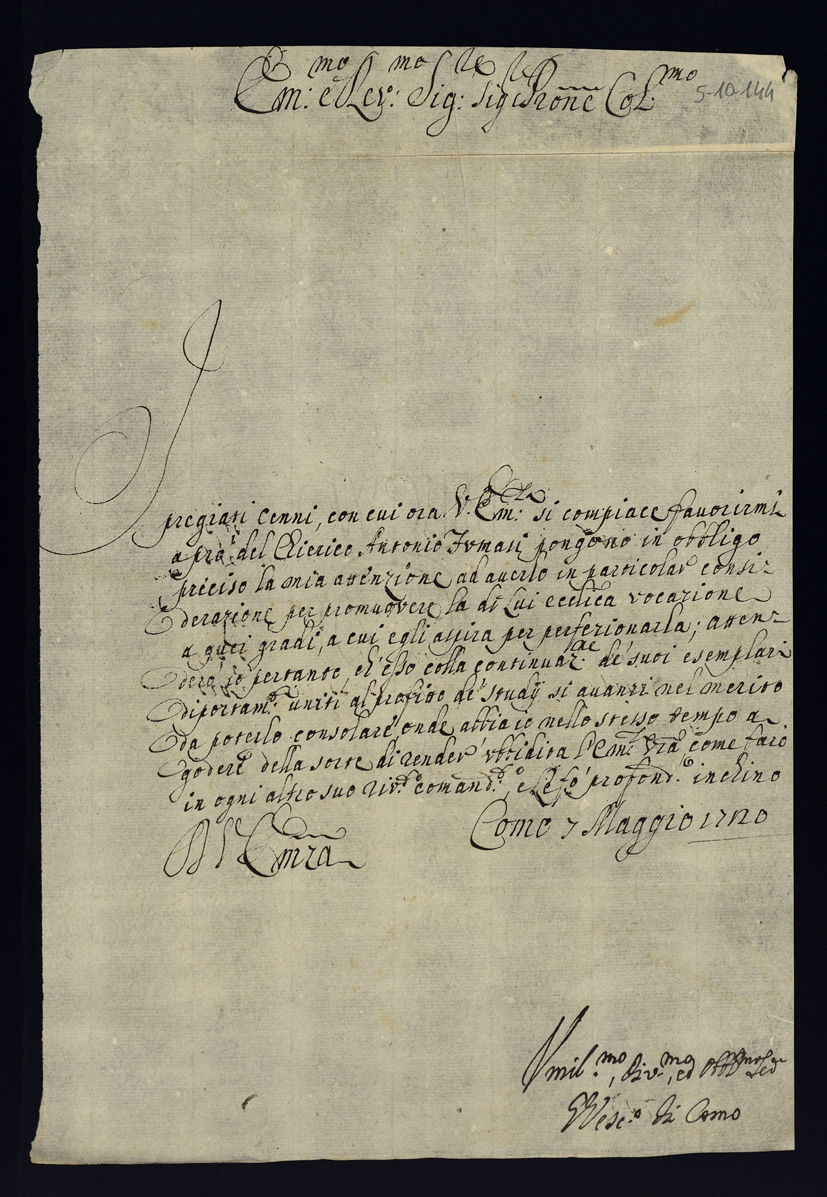 Em:mo e Rev:mo Sig:re Sig:re Prone Col:mo 5-10-144
I pregiati cenni, con cui ora V. Em:za si compiace favorirmi
a prò del Chierico Antonio Tomasi pongono in obbligo
preciso la mia attenzione ad averlo in particolar consi-
derazione per promuovere la di Lui ecclica vocazione
a quei gradi, a cui egli aspira per perfezionarla; atten-
derò io pertanto, ch'esso colla continuaz:ne de' suoi esemplari
diportam:ti uniti al profitto de' studij si avanzi nel merito
da poterlo consolare, onde abbia io nello stesso tempo a
godere della sorte di render ubbidita l'Em:za Vra, come farò
in ogni altro suo riv:do comand:o, e Le fò profond:o inchino
Di V. Emza Como 7 Maggio 1720
Umil:mo, div:mo, ed obb:mo Ser:
Il Vesc:o di Como